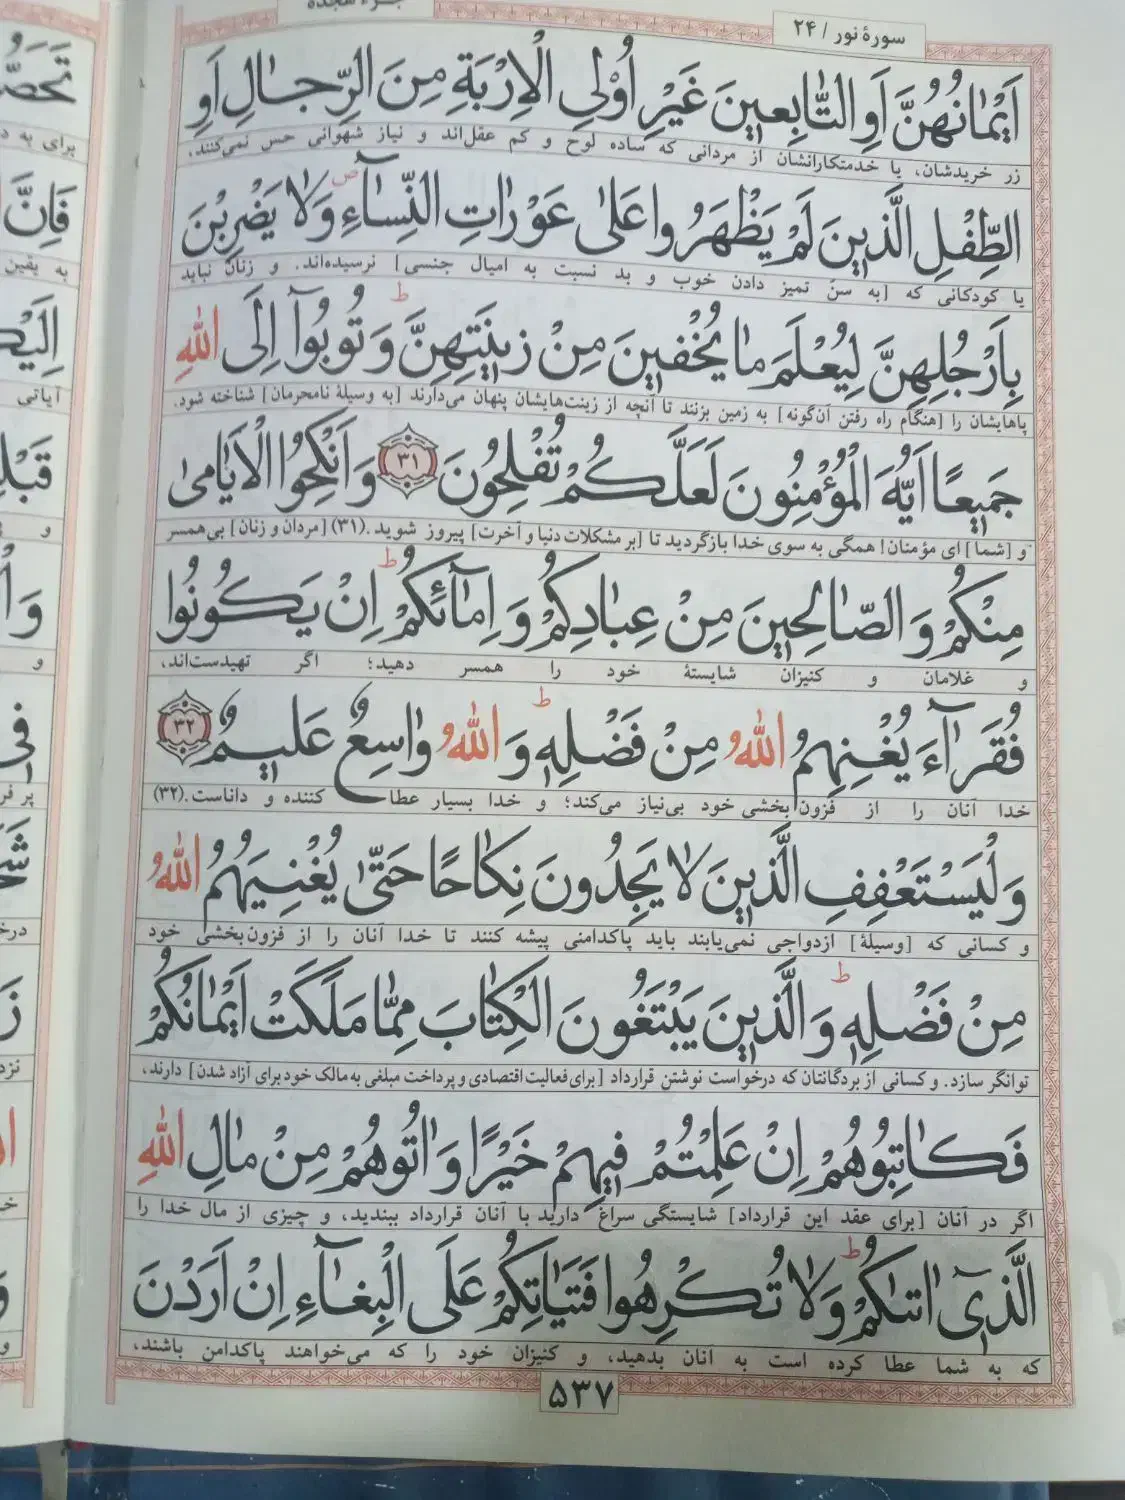 جزء هجده
سورهٔ نور / ۲۴
اَيْمٰانُهُنَّ اَوِ التّٰابِعِينَ غَيْرِ اُوْلِى الْاِرْبَةِ مِنَ الرِّجٰالِ اَوِ
زر خریدشان، یا خدمتکارانشان از مردانی که ساده لوح و کم عقل‌اند و نیاز شهوانی حس نمی‌کنند،
الطِّفْلِ الَّذِينَ لَمْ يَظْهَرُوا عَلىٰ عَوْرٰاتِ النِّسٰآءِ ص وَلٰا يَضْرِبْنَ
یا کودکانی که [به سنّ تمیز دادن خوب و بد نسبت به امیال جنسی] نرسیده‌اند. و زنان نباید
بِاَرْجُلِهِنَّ لِيُعْلَمَ مٰا يُخْفِينَ مِنْ زِينَتِهِنَّ ط وَ تُوبُوآ اِلَى اللّٰهِ
پاهایشان را [هنگام راه رفتن آن‌گونه] به زمین بزنند تا آنچه از زینت‌هایشان پنهان می‌دارند [به وسیلهٔ نامحرمان] شناخته شود.
جَمِيعًا اَيُّهَ الْمُؤْمِنُونَ لَعَلَّكُمْ تُفْلِحُونَ ۳۱ وَ اَنْكِحُوا الْاَيٰامىٰ
و [شما] ای مؤمنان! همگی به سوی خدا بازگردید تا [بر مشکلات دنیا و آخرت] پیروز شوید.(۳۱) [مردان و زنان] بی‌همسر
مِنْكُمْ وَ الصّٰالِحِينَ مِنْ عِبٰادِكُمْ وَ اِمٰآئِكُمْ ط اِنْ يَكُونُوا
و غلامان و کنیزان شایستهٔ خود را همسر دهید؛ اگر تهیدست‌اند،
فُقَرٰآءَ يُغْنِهِمُ اللّٰهُ مِنْ فَضْلِهٖ ط وَ اللّٰهُ وٰاسِعٌ عَلِيمٌ ۳۲
خدا آنان را از فزون‌بخشی خود بی‌نیاز می‌کند؛ و خدا بسیار عطا کننده و داناست.(۳۲)
وَلْيَسْتَعْفِفِ الَّذِينَ لٰا يَجِدُونَ نِكٰاحًا حَتّىٰ يُغْنِيَهُمُ اللّٰهُ
و کسانی که [وسیلهٔ] ازدواجی نمی‌یابند باید پاکدامنی پیشه کنند تا خدا آنان را از فزون‌بخشی خود
مِنْ فَضْلِهٖ ط وَ الَّذِينَ يَبْتَغُونَ الْكِتٰابَ مِمّٰا مَلَكَتْ اَيْمٰانُكُمْ
توانگر سازد. و کسانی از بردگانتان که درخواست نوشتن قرارداد [برای فعالیت اقتصادی و پرداخت مبلغی به مالک خود برای آزاد شدن] دارند،
فَكٰاتِبُوهُمْ اِنْ عَلِمْتُمْ فِيهِمْ خَيْرًا وَ اٰتُوهُمْ مِنْ مٰالِ اللّٰهِ
اگر در آنان [برای عقد این قرارداد] شایستگی سراغ دارید با آنان قرارداد ببندید، و چیزی از مال خدا را
الَّذِىٓ اٰتٰىكُمْ ط وَ لٰا تُكْرِهُوا فَتَيٰاتِكُمْ عَلَى الْبِغٰآءِ اِنْ اَرَدْنَ
که به شما عطا کرده است به آنان بدهید، و کنیزان خود را که می‌خواهند پاکدامن باشند،
۵۳۷
برای به
فَاِنَّ
به یقین
آیاتی
و
وَ
و
فِى
پر فر
نزد
و